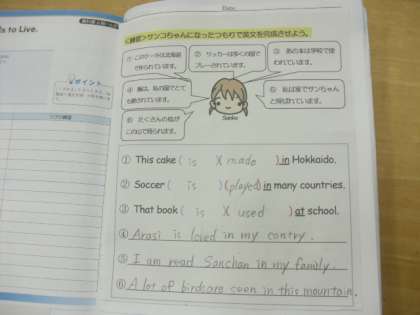 Date
s to Live.
ポイント
<練習>サンコちゃんになったつもりで英文を完成させよう。
① このケーキは北海道
で作られています。
② サッカーは多くの国で
プレーされています。
③ あの本は学校で使
われています。
④ 嵐は、私の国でとて
も愛されています。
⑤ 私は家でサンちゃん
と呼ばれています。
⑥ たくさんの鳥が
この山で見られます。
Sanko
① This cake ( is )( made ) in Hokkaido.
② Soccer ( is )( played ) in many countries.
③ That book ( is )( used ) at school.
④ Arasi is loved in my contry.
⑤ I am read Sanchan in my family
⑥ A lot of birds are seen in this mountain.